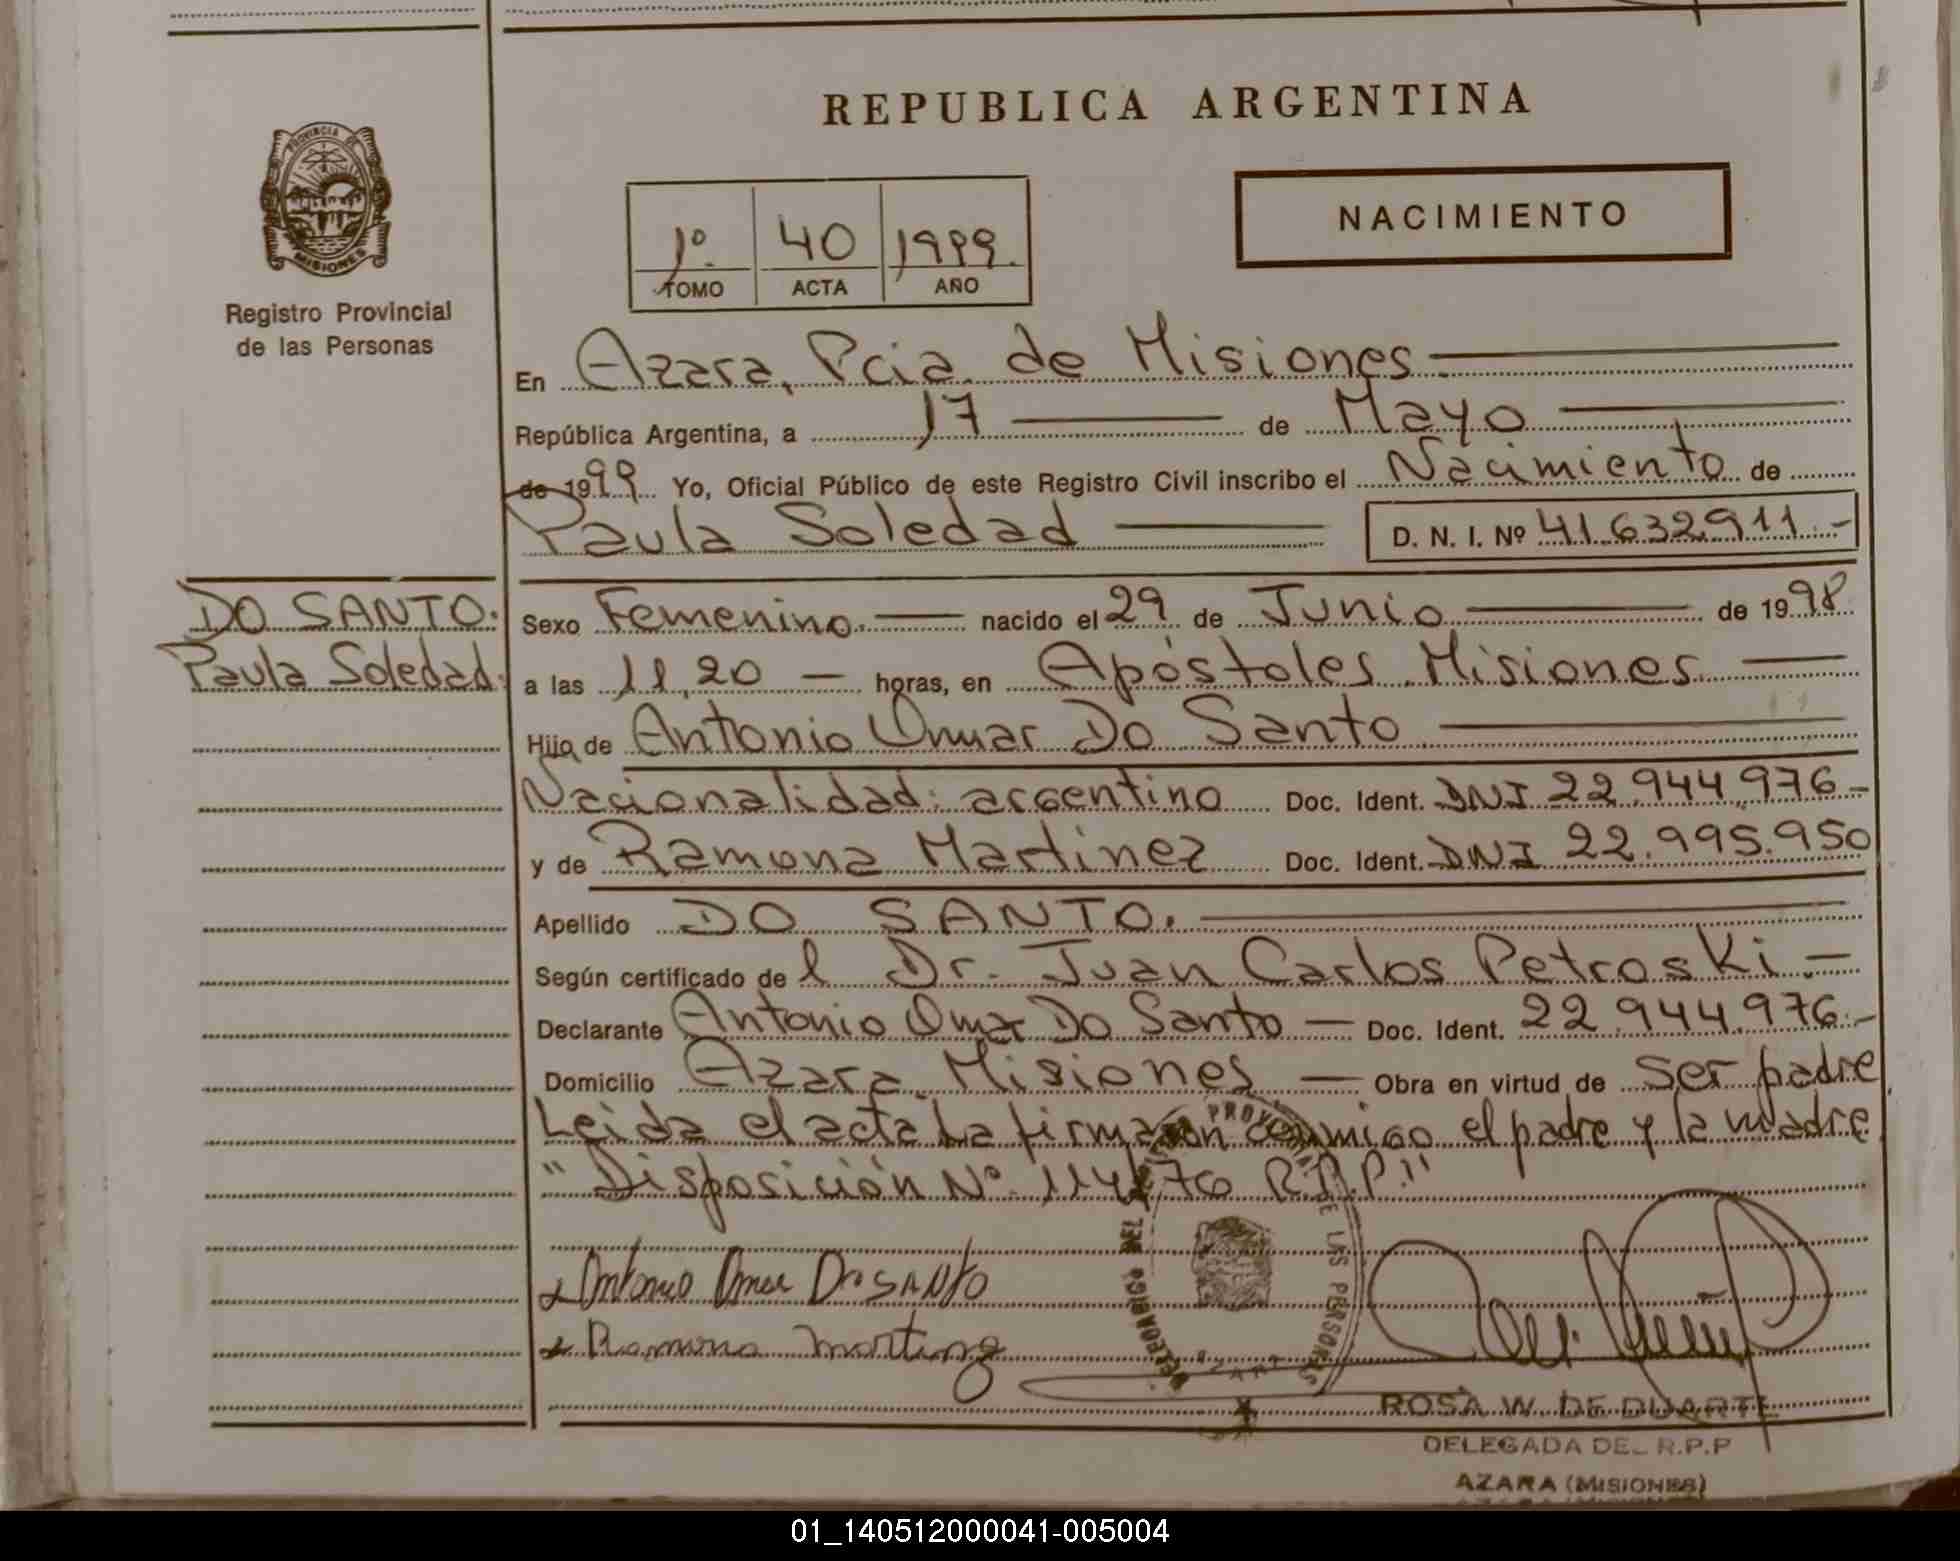 REPUBLICA ARGENTINA
PROVINCIA DE
MISIONES
Registro Provincial
de las Personas
1º
TOMO
40
ACTA
1999.
AÑO
NACIMIENTO
En Azara, Pcia. de Misiones
República Argentina, a 17 de Mayo
de 1999 Yo, Oficial Público de este Registro Civil inscribo el Nacimiento de
Paula Soledad D. N. I. Nº 41.632.911.-
DO SANTO.
Paula Soledad.
Sexo Femenino. nacido el 29 de Junio de 1998
a las 11,20 — horas, en Apóstoles Misiones.
Hija de Antonio Omar Do Santo
Nacionalidad: argentino Doc. Ident. DNI 22.944.976-
y de Ramona Martinez Doc. Ident. DNI 22.995.950
Apellido DO SANTO.
Según certificado del Dr. Juan Carlos Petroski.-
Declarante Antonio Omar Do Santo — Doc. Ident. 22.944.976.-
Domicilio Azara, Misiones — Obra en virtud de ser padre
Leida el acta La firmaron conmigo el padre y la madre.
"Disposición Nº 114/76 R.P.P."
Antonio Omar Do SANTO
Ramona
DEL PROVINCIAL DE LAS PERSONAS
ROSA W. DE DUARTE
DELEGADA DEL R.P.P
AZARA (MISIONES)
01_140512000041-005004